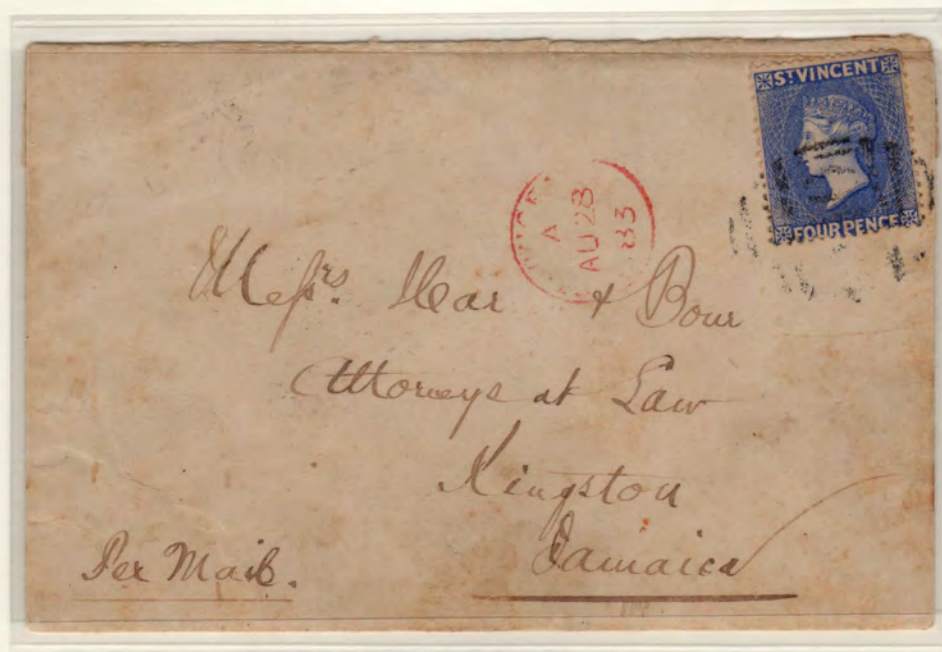 ST VINCENT
FOUR PENCE
A
AU 28
83
Messrs. Har & Bour
Attorneys at Law
Kingston
Jamaica
Per Mail.